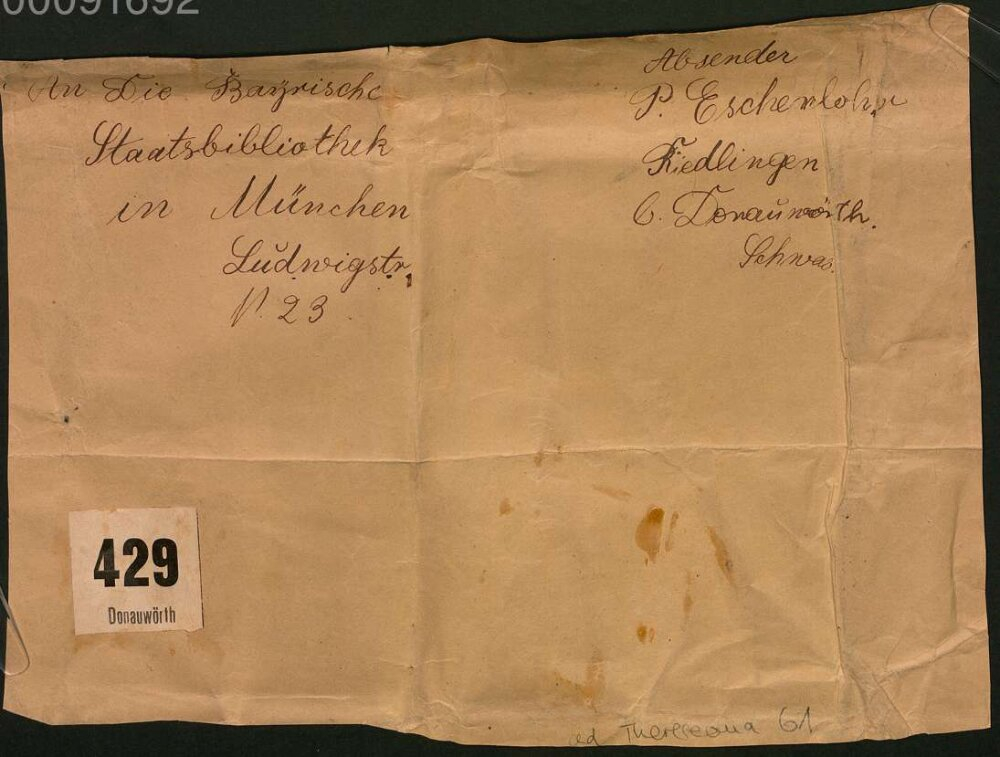 00091692
An Die Bayrische
Staatsbibliothek
in München
Ludwigstr.
N. 23
Absender
P. Eschenlohr
Riedlingen
b. Donauwörth.
Schwab.
429
Donauwörth
ad Thereseana 61